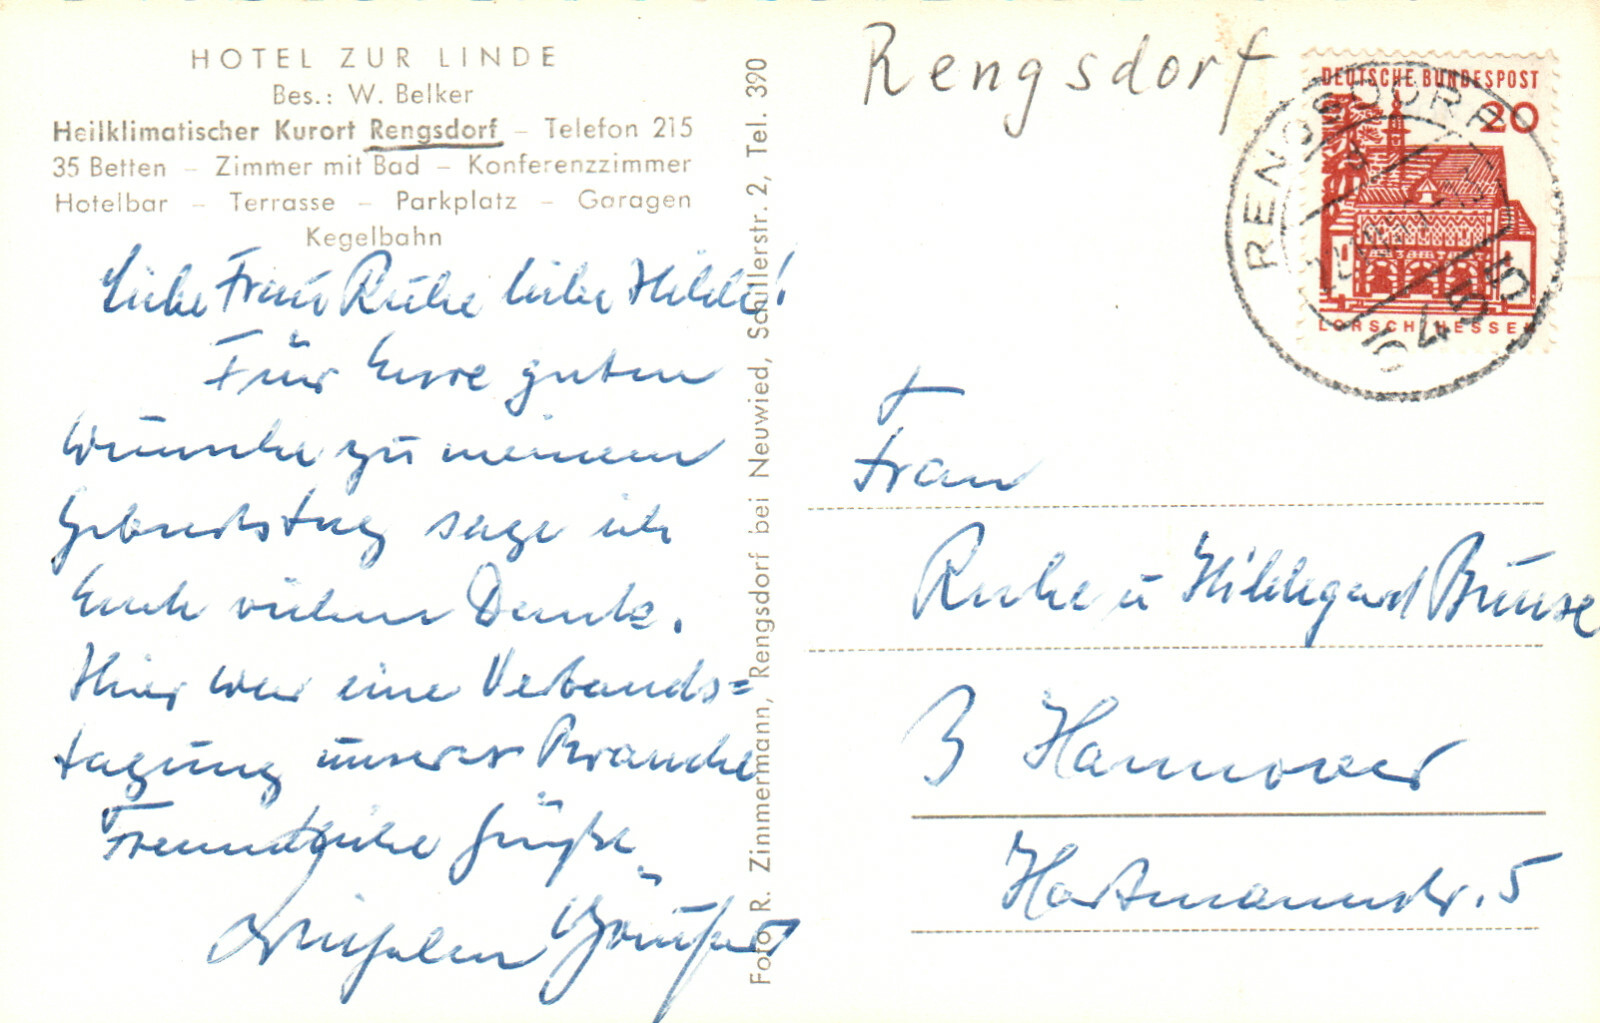 HOTEL ZUR LINDE
Bes.: W. Belker
Heilklimatischer Kurort Rengsdorf – Telefon 215
35 Betten – Zimmer mit Bad – Konferenzzimmer
Hotelbar – Terrasse – Parkplatz – Garagen
Kegelbahn
Liebe Frau Ruhe liebe Hilde!
Für Eure guten
Wünsche zu meinem
Geburtstag sage ich
Euch vielen Dank.
Hier war eine Verbands=
tagung unserer Branche
Freundliche Grüße
Foto R. Zimmermann, Rengsdorf bei Neuwied, Schillerstr. 2, Tel. 390
Rengsdorf
DEUTSCHE BUNDESPOST
20
LORSCH/HESSEN
RENGSDORF
5457
Frau
Ruhe u Hildegard Bunse
3 Hannover
Hartmannstr. 5